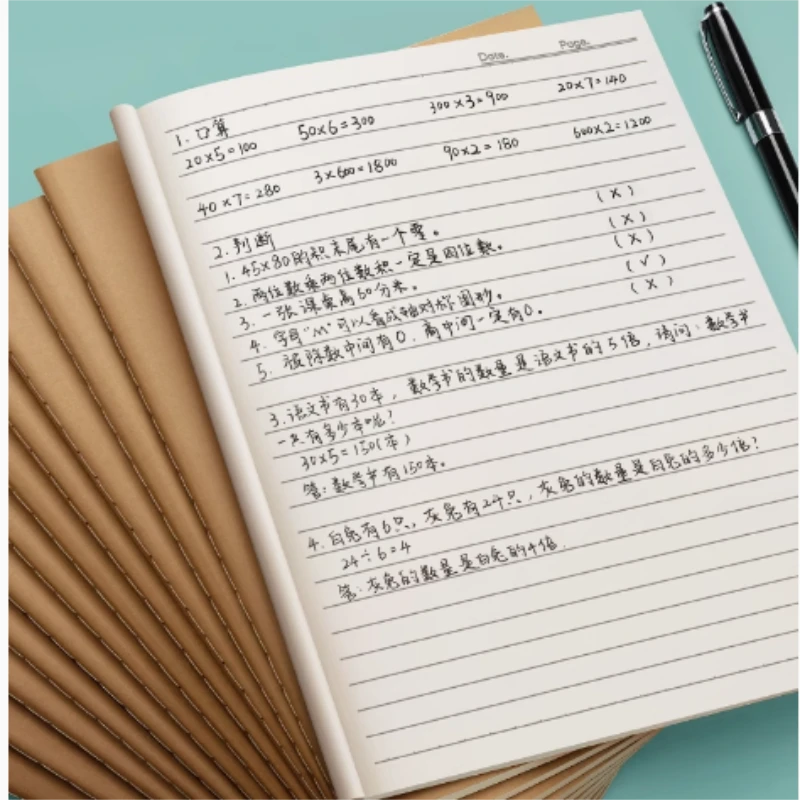 Date. Page.
1. 口算
20×5=100 50×6=300 300×3=900 20×7=140
40×7=280 3×600=1800 90×2=180 600×2=1200
2. 判断
1. 45×80的积末尾有一个零。 (×)
2. 两位数乘两位数积一定是四位数。 (×)
3. 一张课桌高60分米。 (×)
4. 字母“M”可以看成轴对称图形。 (√)
5. 被除数中间有0,商中间一定有0。 (×)
3. 语文书有30本,数学书的数量是语文书的5倍,请问:数学书
一共有多少本呢?
30×5=150(本)
答:数学书有150本。
4. 白兔有6只,灰兔有24只,灰兔的数量是白兔的多少倍?
24÷6=4
答:灰兔的数量是白兔的4倍.